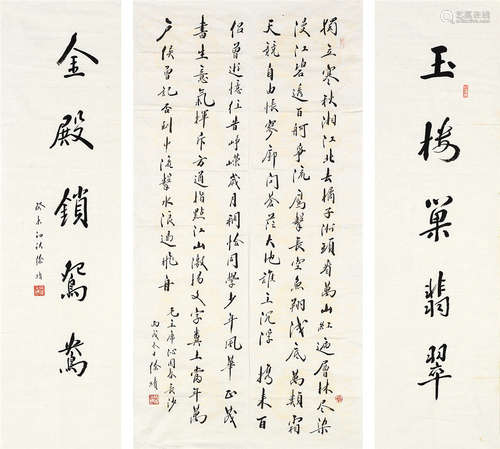 玉楼巢翡翠
獨立寒秋湘江北去橘子洲頭看萬山紅遍層林尽染
漫江碧透百舸爭流鷹擊長空魚翔淺底萬類霜
天競自由悵寥廓問蒼茫大地誰主沉浮 携來百
侣曾遊憶往昔崢嶸歲月稠恰同學少年風華正茂
書生意氣揮斥方遒指點江山激揚文字糞土當年萬
户侯曾記否到中流擊水浪遏飛舟
毛主席沁園春長沙
丙戌
金殿鎖鴛鴦
癸未初秋